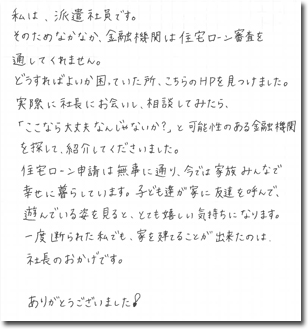 私は、派遣社員です。
そのためなかなか、金融機関は住宅ローン審査を
通してくれません。
どうすればよいか困っていた所、こちらのHPを見つけました。
実際に社長にお会いし、相談してみたら、
「ここなら大丈夫なんじゃないか?」と可能性のある金融機関
を探して、紹介してくださいました。
住宅ローン申請は無事に通り、今では家族みんなで
幸せに暮らしています。子ども達が家に友達を呼んで、
遊んでいる姿を見ると、とても嬉しい気持ちになります。
一度断られた私でも、家を建てることが出来たのは、
社長のおかげです。
ありがとうございました!